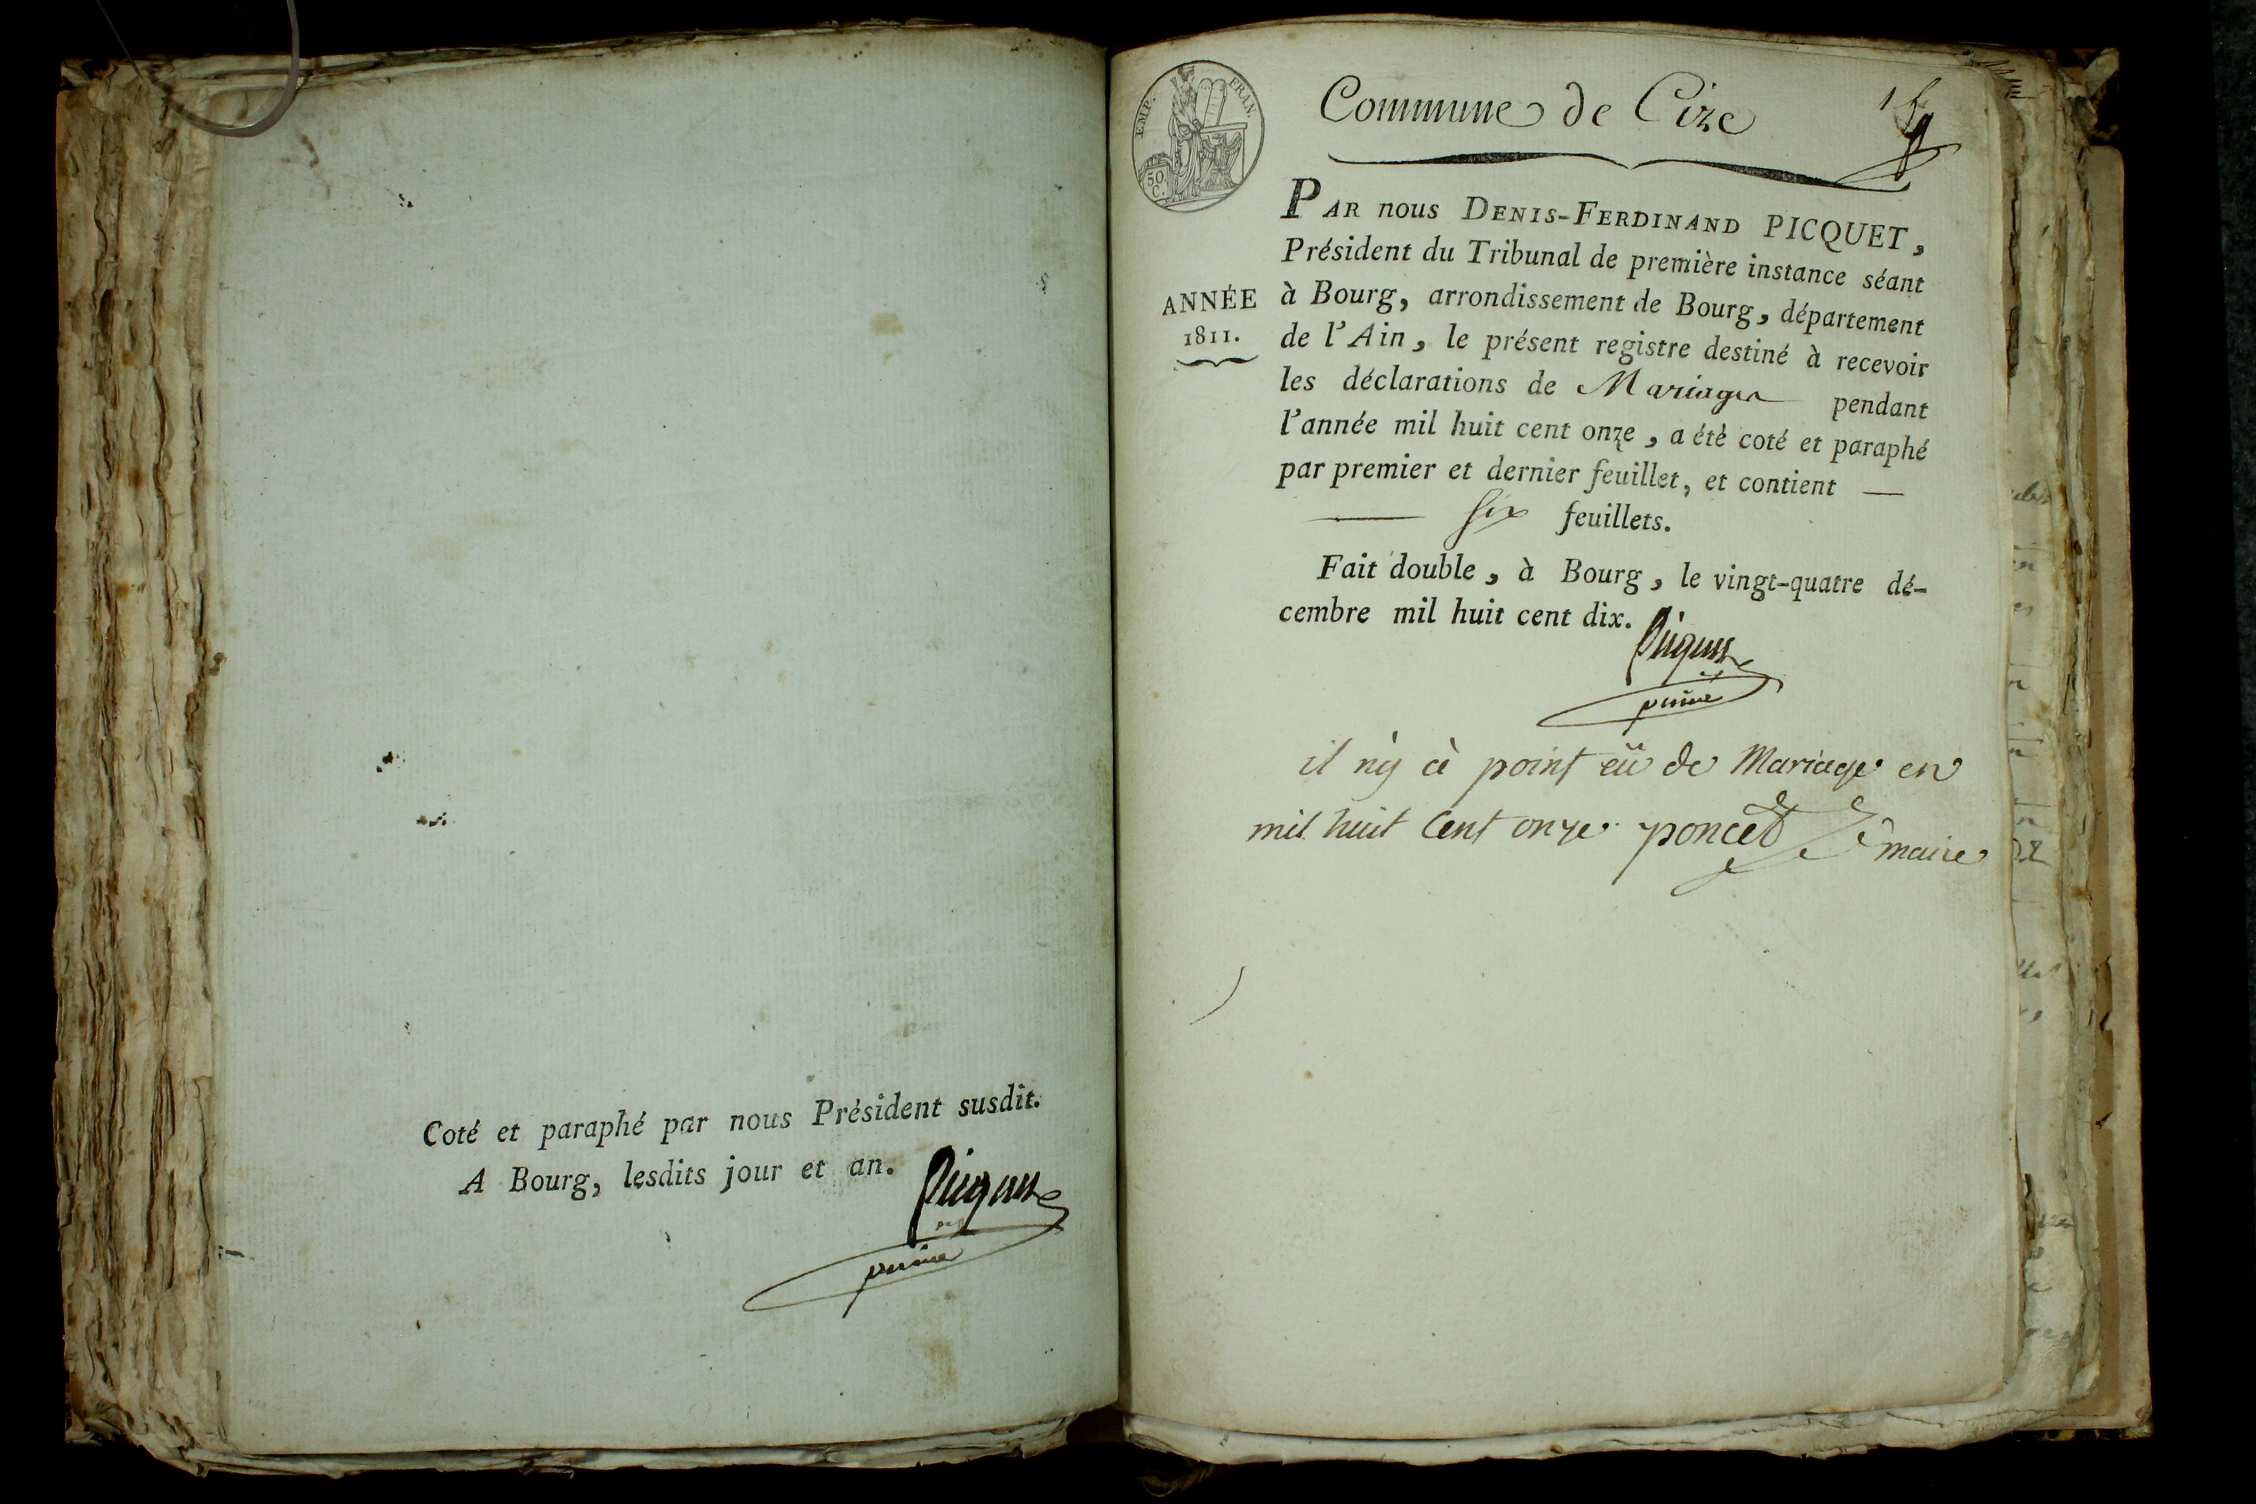 Coté et paraphé par nous Président susdit.
A Bourg, lesdits jour et an.
Picquet
EMP. FRAN.
50
C.
Commune de Cize
1 f
PAR nous DENIS-FERDINAND PICQUET,
Président du Tribunal de première instance séant
à Bourg, arrondissement de Bourg, département
ANNÉE
1811.
de l'Ain, le présent registre destiné à recevoir
les déclarations de Mariages pendant
l'année mil huit cent onze, a été coté et paraphé
par premier et dernier feuillet, et contient —
— six feuillets.
Fait double, à Bourg, le vingt-quatre dé-
cembre mil huit cent dix.
Picquet
il n'y à point eü de Mariage en
mil huit Cent onze poncet maire